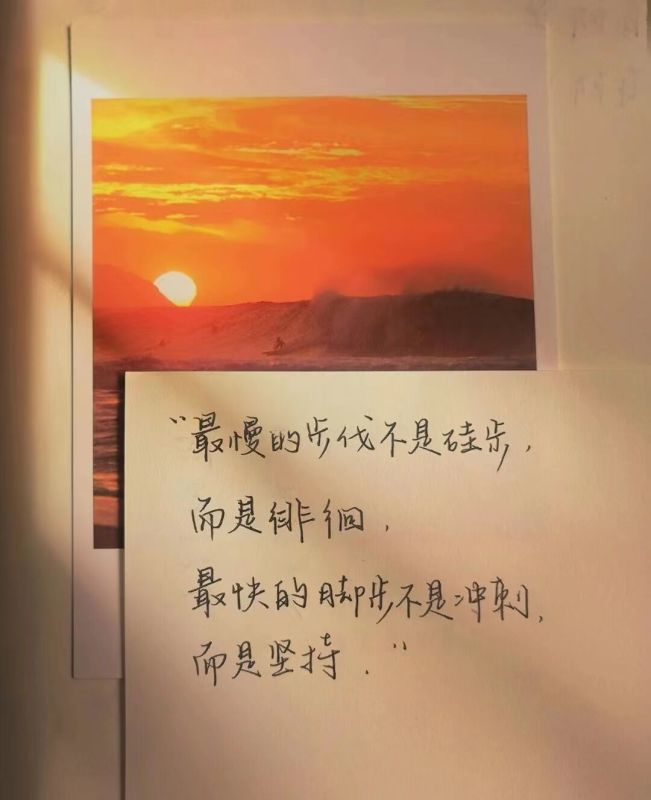 “最慢的步伐不是硅步，
而是徘徊，
最快的脚步不是冲刺，
而是坚持．”